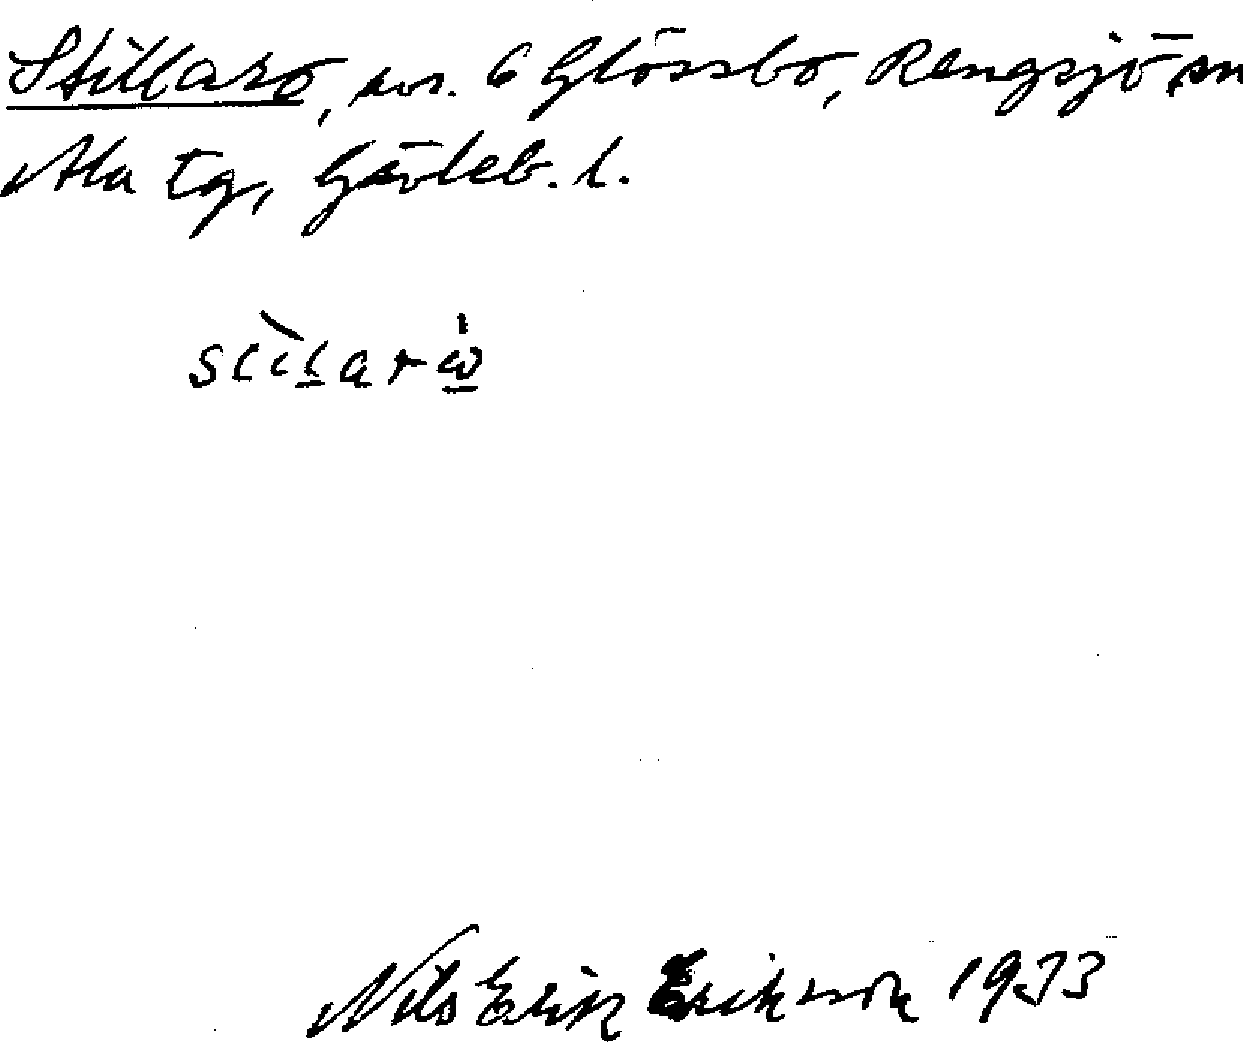 Stillaro, avs. 6 Glössbo, Rengsjö sn
Ala tg, Gävleb. l.
Nils Erik Eriksson 1933